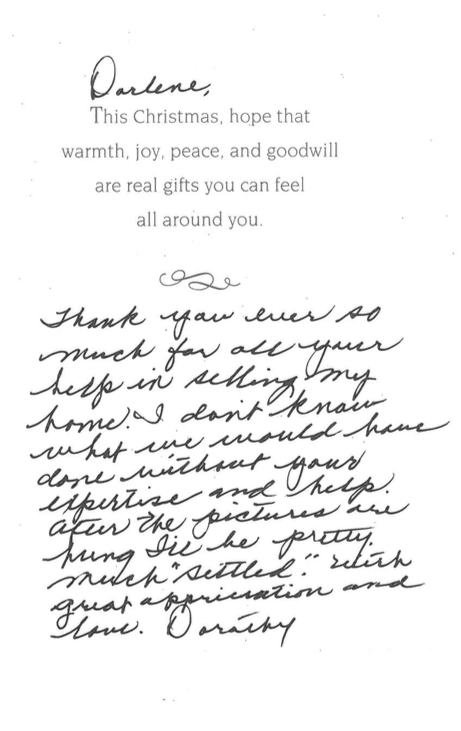 Darlene,
This Christmas, hope that
warmth, joy, peace, and goodwill
are real gifts you can feel
all around you.
Thank you ever so
much for all your
help in selling my
home. I don't know
what we would have
done without your
expertise and help.
After the pictures are
hung I'll be pretty
much "settled." With
great appriciation and
love. Dorothy